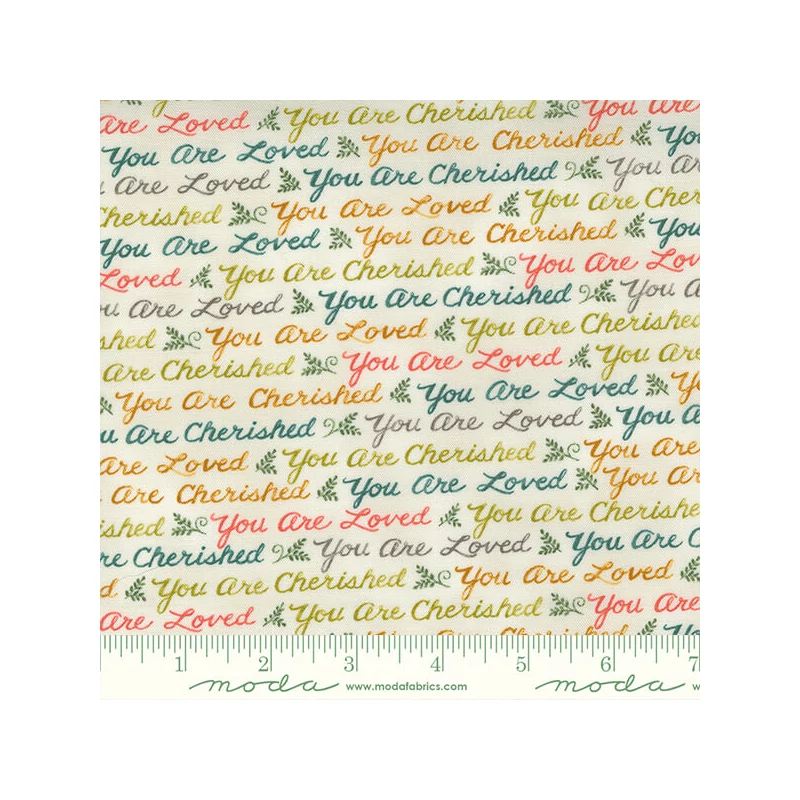 are Loved You Are Cherished You Are
You Are Loved You Are Cherished You
Are Loved You Are Cherished You A
Cherished You Are Loved You Are Cher
You Are Loved You Are Cherished You
Loved You Are Cherished You Are Lov
u Are Loved You Are Cherished You A
shed You Are Loved You Are Cherished
Are Cherished You Are Loved You Are
You Are Cherished You Are Loved Y
u Are Cherished You Are Loved You A
Are Loved You Are Cherished You Are
Are Cherished You Are Loved You Ar
ished You Are Loved You Are Cherishe
re Cherished You Are Loved You Are C
d You Are Cherished You Are Loved
Are Loved You Are Cherished You Are
You Are Cherished You
1 2 3 4 5 6 7
moda www.modafabrics.com moda w